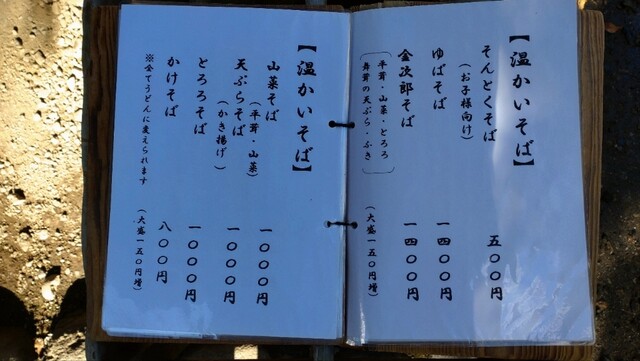 【温かいそば】
そんとくそば
(お子様向け)
五〇〇円
ゆばそば
一四〇〇円
金次郎そば
一四〇〇円
平茸・山菜・とろろ
舞茸の天ぷら・ふき
(大盛一五〇円増)
【温かいそば】
山菜そば
(平茸・山菜)
一〇〇〇円
天ぷらそば
(かき揚げ)
一〇〇〇円
とろろそば
一〇〇〇円
かけそば
八〇〇円
※全てうどんに変えられます
(大盛一五〇円増)